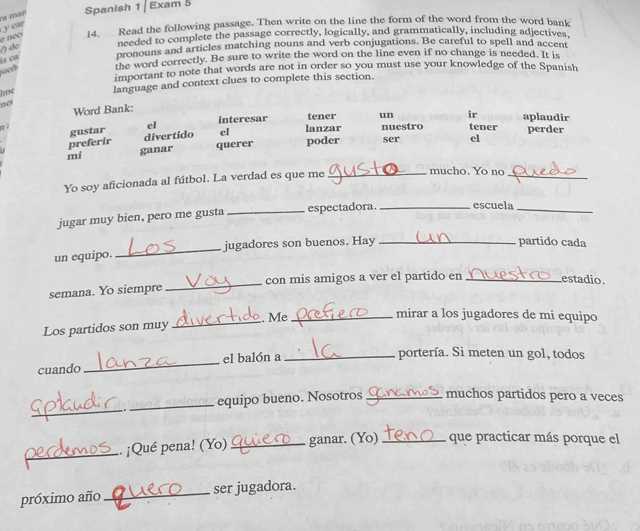 Spanish 1 | Exam 5
14. Read the following passage. Then write on the line the form of the word from the word bank
needed to complete the passage correctly, logically, and grammatically, including adjectives,
pronouns and articles matching nouns and verb conjugations. Be careful to spell and accent
the word correctly. Be sure to write the word on the line even if no change is needed. It is
important to note that words are not in order so you must use your knowledge of the Spanish
language and context clues to complete this section.
Word Bank:
gustar el interesar tener un ir aplaudir
preferir divertido el lanzar nuestro tener perder
mi ganar querer poder ser el
Yo soy aficionada al fútbol. La verdad es que me gusto mucho. Yo no puedo
jugar muy bien, pero me gusta ____ espectadora. ____ escuela ____
un equipo. Los jugadores son buenos. Hay un partido cada
semana. Yo siempre voy con mis amigos a ver el partido en nuestro estadio.
Los partidos son muy divertido. Me prefiero mirar a los jugadores de mi equipo
cuando lanza el balón a la portería. Si meten un gol, todos
aplaudir. ____ equipo bueno. Nosotros ganamos muchos partidos pero a veces
perdemos. ¡Qué pena! (Yo) quiero ganar. (Yo) teno que practicar más porque el
próximo año quero ser jugadora.